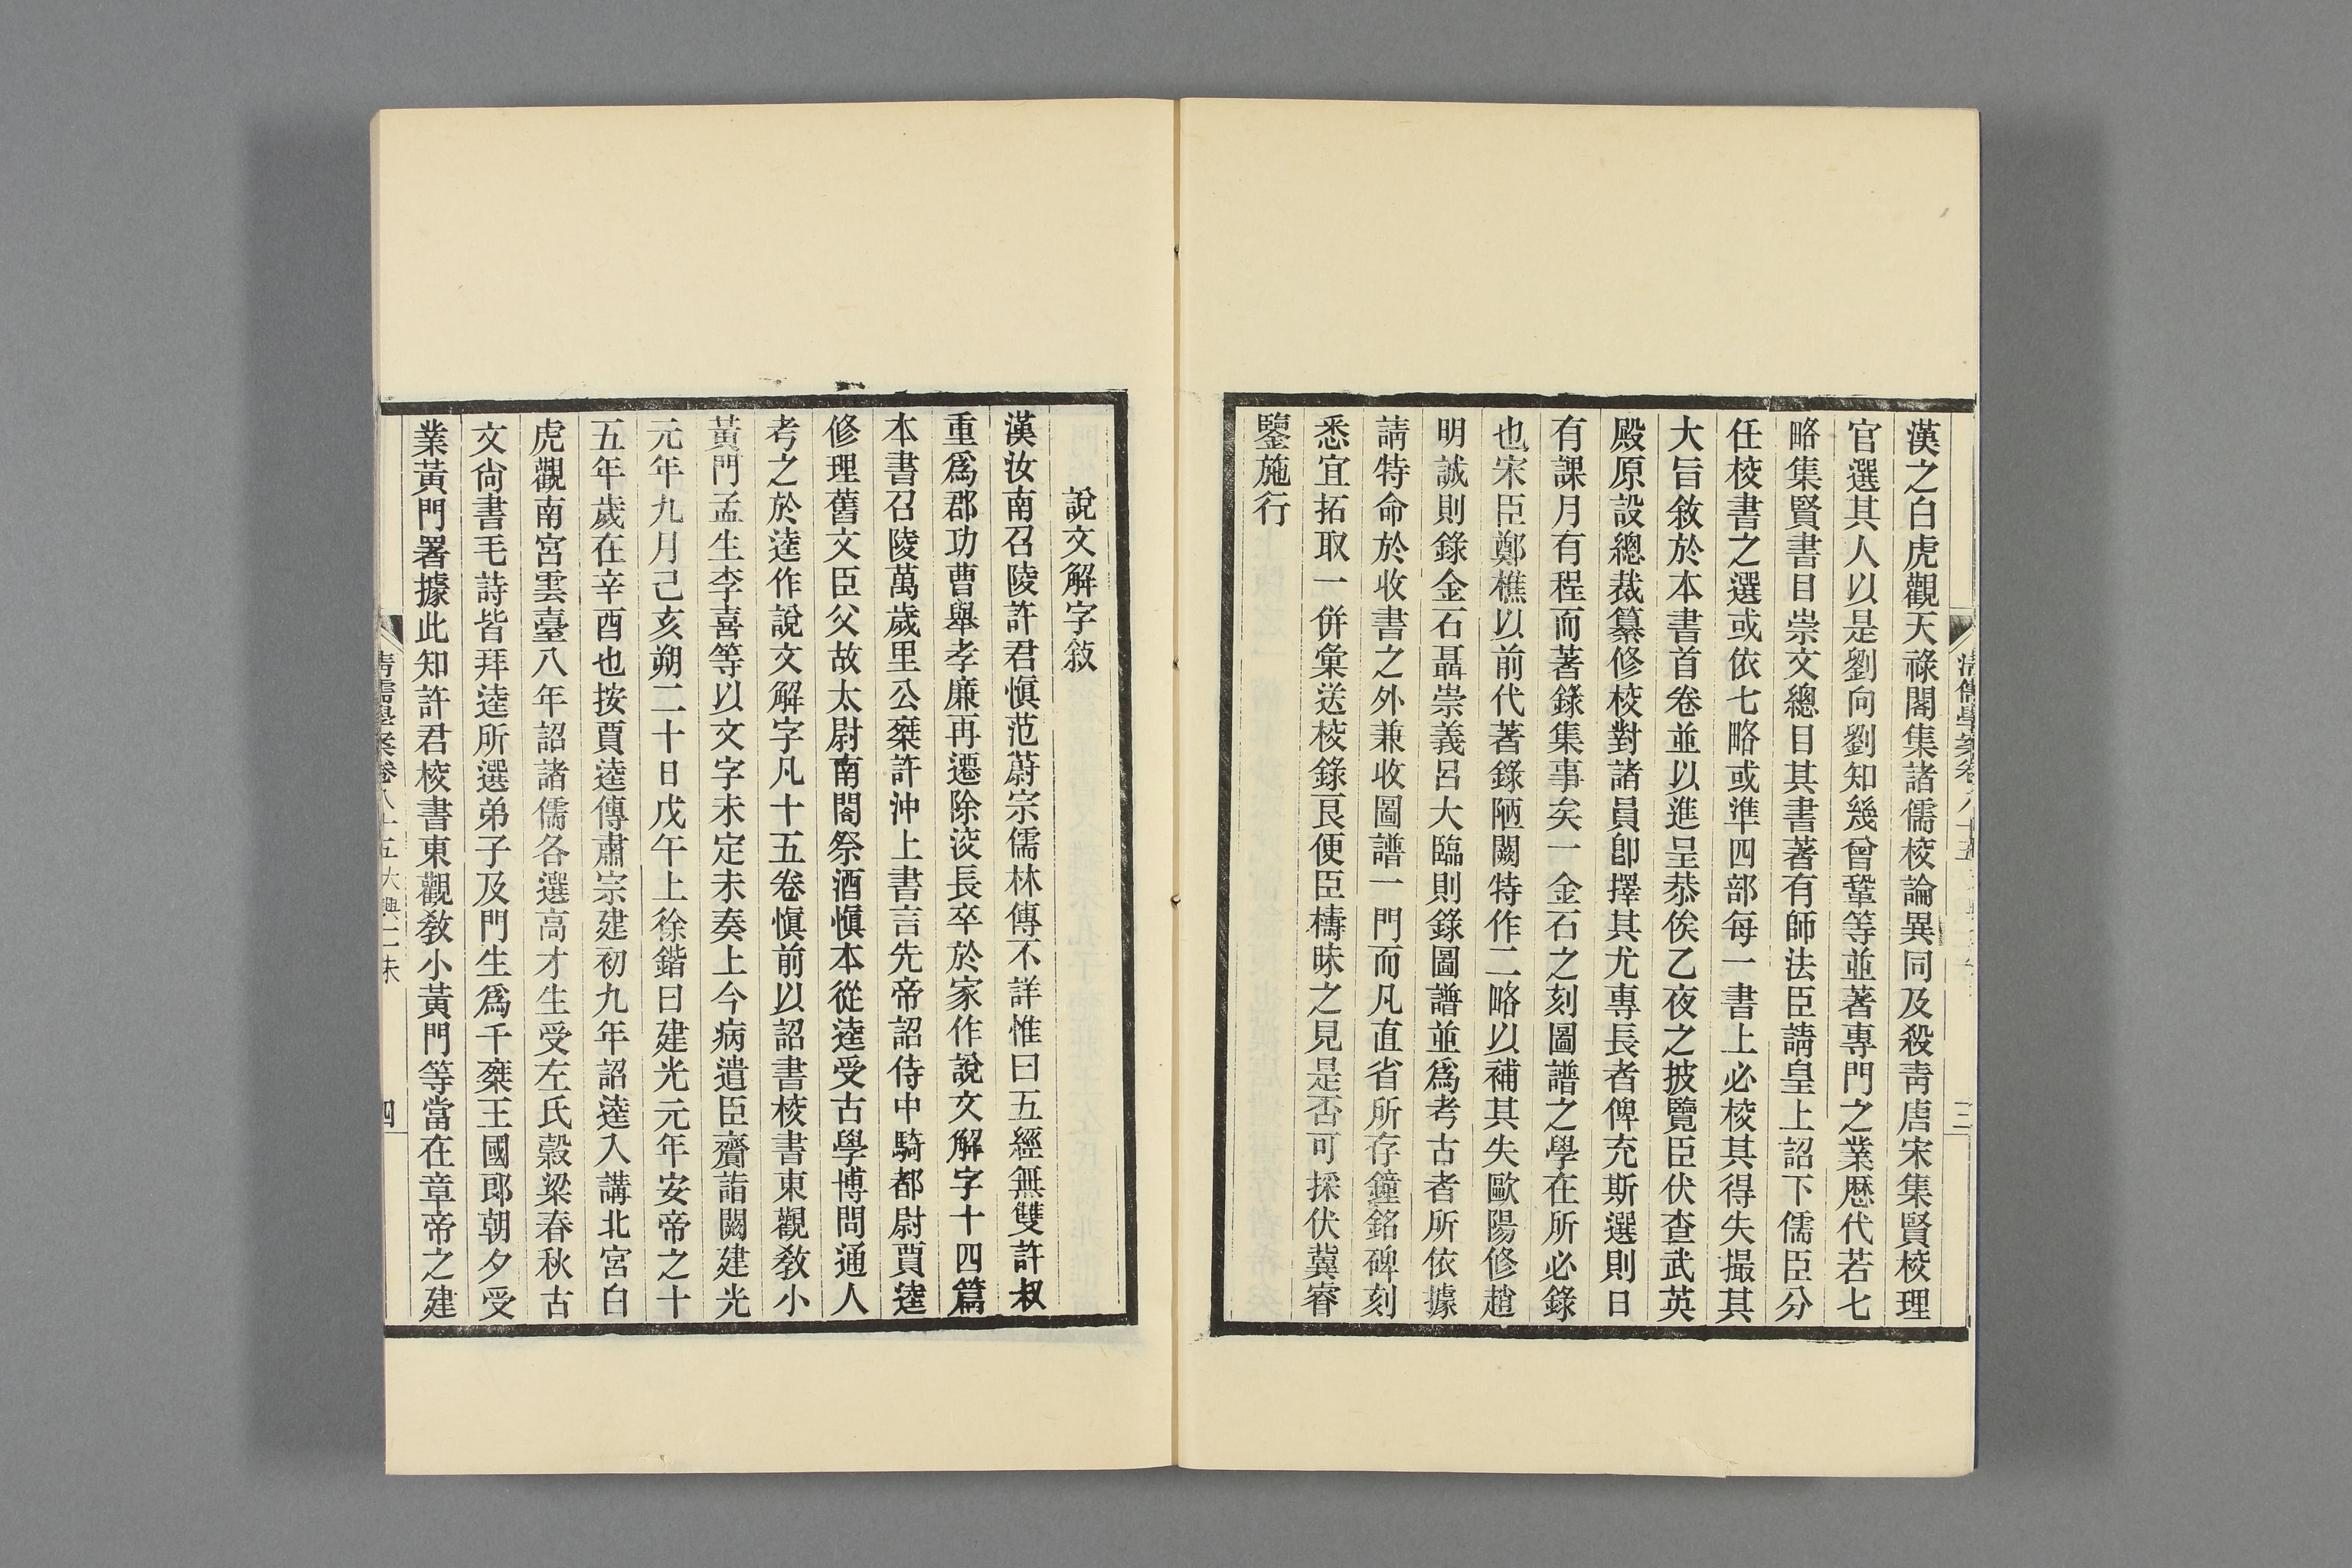 漢之白虎觀天祿閣集諸儒校論異同及殺靑唐宋集賢校理
官選其人以是劉向劉知幾曾鞏等並著專門之業歷代若七
略集賢書目崇文總目其書著有師法臣請皇上詔下儒臣分
任校書之選或依七略或準四部每一書上必校其得失撮其
大旨敘於本書首卷並以進呈恭俟乙夜之披覽臣伏查武英
殿原設總裁纂修校對諸員卽擇其尤專長者俾充斯選則日
有課月有程而著錄集事矣一金石之刻圖譜之學在所必錄
也宋臣鄭樵以前代著錄陋闕特作二略以補其失歐陽修趙
明誠則錄金石聶崇義呂大臨則錄圖譜並爲考古者所依據
請特命於收書之外兼收圖譜一門而凡直省所存鐘銘碑刻
悉宜拓取一併彙送校錄良便臣檮昧之見是否可採伏冀睿
鑒施行
清儒學案卷八十五
三
說文解字敘
漢汝南召陵許君愼范蔚宗儒林傳不詳惟曰五經無雙許叔
重爲郡功曹舉孝廉再遷除洨長卒於家作說文解字十四篇
本書召陵萬歲里公椉許沖上書言先帝詔侍中騎都尉賈逵
修理舊文臣父故太尉南閣祭酒愼本從逵受古學博問通人
考之於逵作說文解字凡十五卷愼前以詔書校書東觀敎小
黃門孟生李喜等以文字未定未奏上今病遣臣齎詣闕建光
元年九月己亥朔二十日戊午上徐鍇曰建光元年安帝之十
五年歲在辛酉也按賈逵傳肅宗建初九年詔逵入講北宮白
虎觀南宮雲臺八年詔諸儒各選高才生受左氏穀梁春秋古
文尙書毛詩皆拜逵所選弟子及門生爲千椉王國郎朝夕受
業黃門署據此知許君校書東觀敎小黃門等當在章帝之建
清儒學案卷八十五大興二朱
四